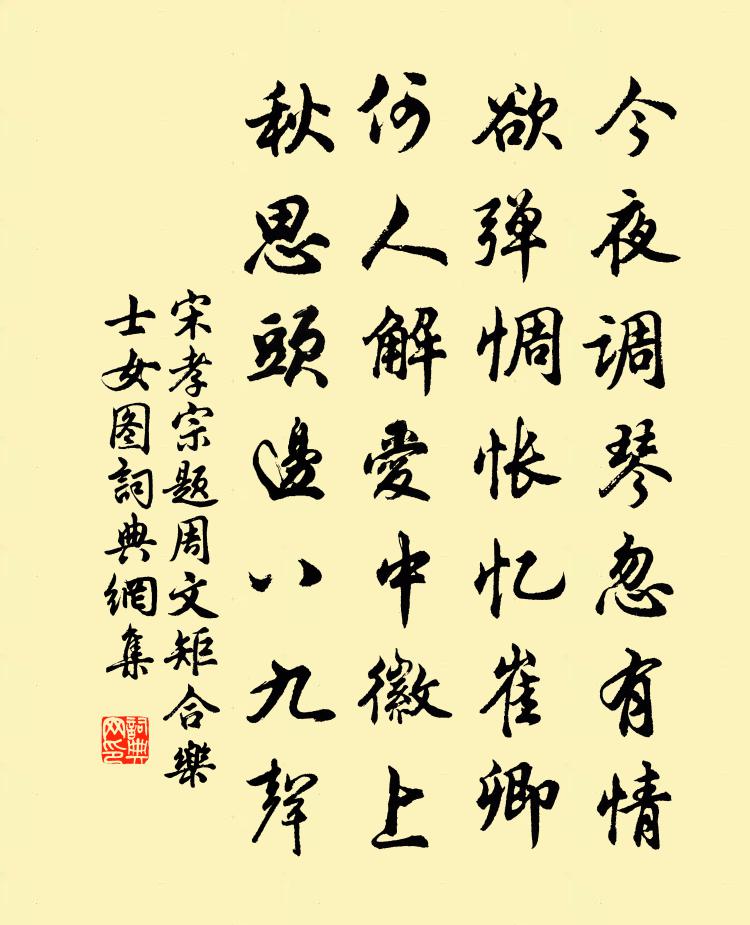 今夜调琴忽有情
欲弹惆怅忆崔卿
何人解爱中徽上
秋思头邊八九聲
宋孝宗题周文矩合樂
士女图詞典網集
詞典网印